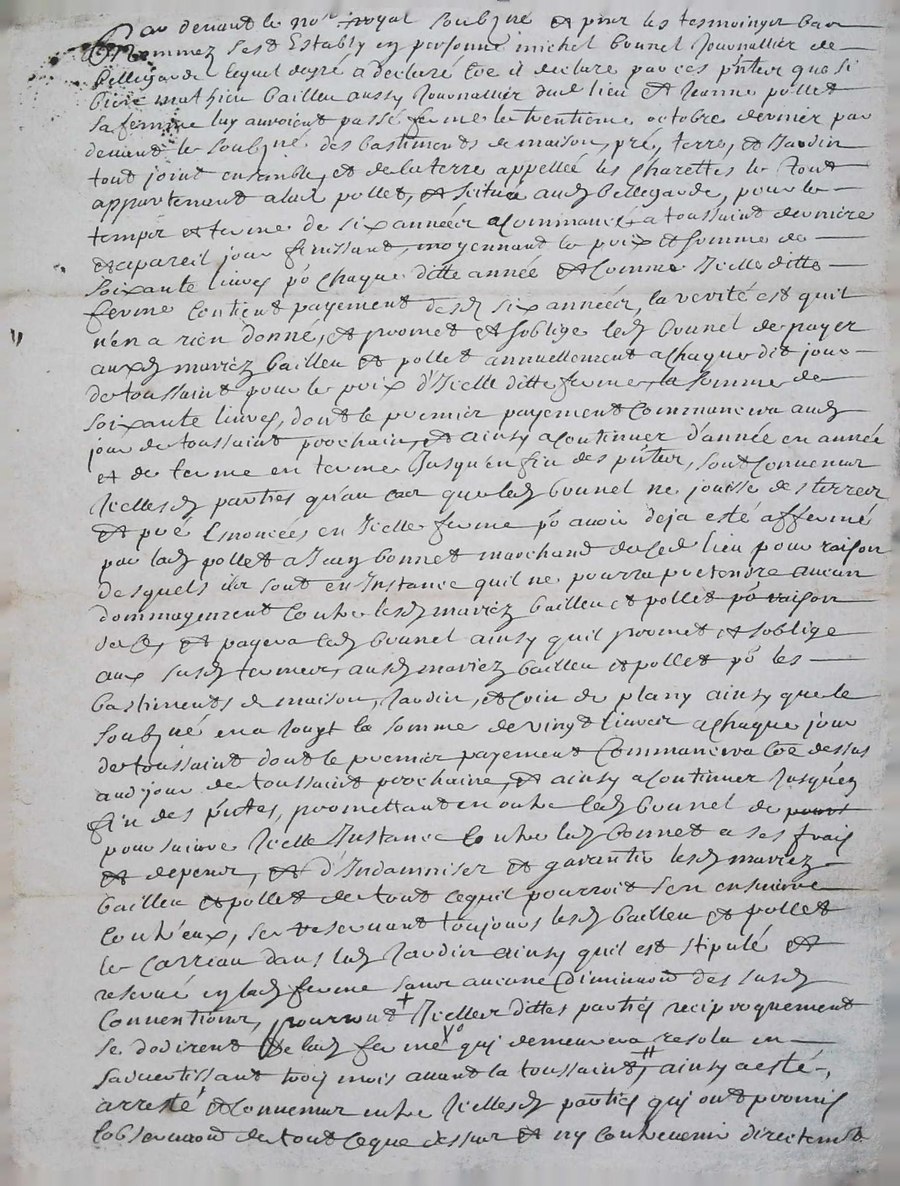 Par devant le no.re royal soubzné et pnt les tesmoingz bas
nommez sest estably en personne michel bonnel Journallier de
bellegarde lequel de gré a declaré coe il declare par ces pntes que si
bien mathieu bailleu aussy Journallier dud lieu et Jeanne pollet
sa femme luy auroient passé ferme le trentieme octobre dernier par
devant le soubzné des bastiments de maison, pré, terre, et Jardin
tout joint ensemble, et de la terre appellée les Charettes le tout
appartenant a lad pollet, et scitué aud bellegarde, pour le
temps et terme de six années a commancé a toussaint derniere
et a pareil jour finissant, moyennant le prix et somme de
soixante livres po chaque ditte année et comme Jcelle ditte
ferme contient payement desd six années, la verité est quil
n'en a rien donné, et promet et soblige led bonnel de payer
auxd mariez bailleu et pollet annuellement a chaque dit jour
de toussaint pour le prix d'Jcelle ditte ferme la somme de
soixante livres, dont le premier payement commancera aud
jour de toussaint prochain, et ainsy a continuer d'année en année
et de terme en terme Jusqu'en fin des pntes, sont convenus
Jcellesd parties qu'au cas que led bonnel ne jouisse des terres
et pré Enoncées en Jcelle ferme po avoir deja esté affermé
par lad pollet a Jean bonnet marchand dud lieu pour raison
desquels ils sont en Instance quil ne pourra pretendre aucun
dommagement contre lesd mariez bailleu et pollet po raison
de ce, et payera led bonnel ainsy quil promet et soblige
aux susd termes, ausd mariez bailleu et pollet po les
bastiments de maison, Jardin, et coin de ainsy que le
soubzné en a la somme de vingt livres a chaque jour
de toussaint dont le premier payement commancera coe dessus
aud jour de toussaint prochaine, et ainsy a continuer Jusqu'en
fin des pntes, promettant en outre led bonnel de
poursuivre Jcelle Instance contre led bonnet a ses frais
et depens, et d'Indamniser et garantir lesd mariez
bailleu et pollet de tout ce quil pourroit s'en ensuivre
contr'eux, se reservant toujours lesd bailleu et pollet
le carreau dans led Jardin ainsy quil est stipulé et
reservé en lad ferme sans aucune diminuon des susd
conventions, pourront + Jcelles dittes parties reciproquement
se dédirent de lad ferme Vo quj demeurera resolu en
s'avertissant trois mois avant la toussaint, # ainsy a esté
arresté et convenus entre Jcellesd parties quj ont promis
lobservaon de tout ce que dessus et ny contrevenir directemt